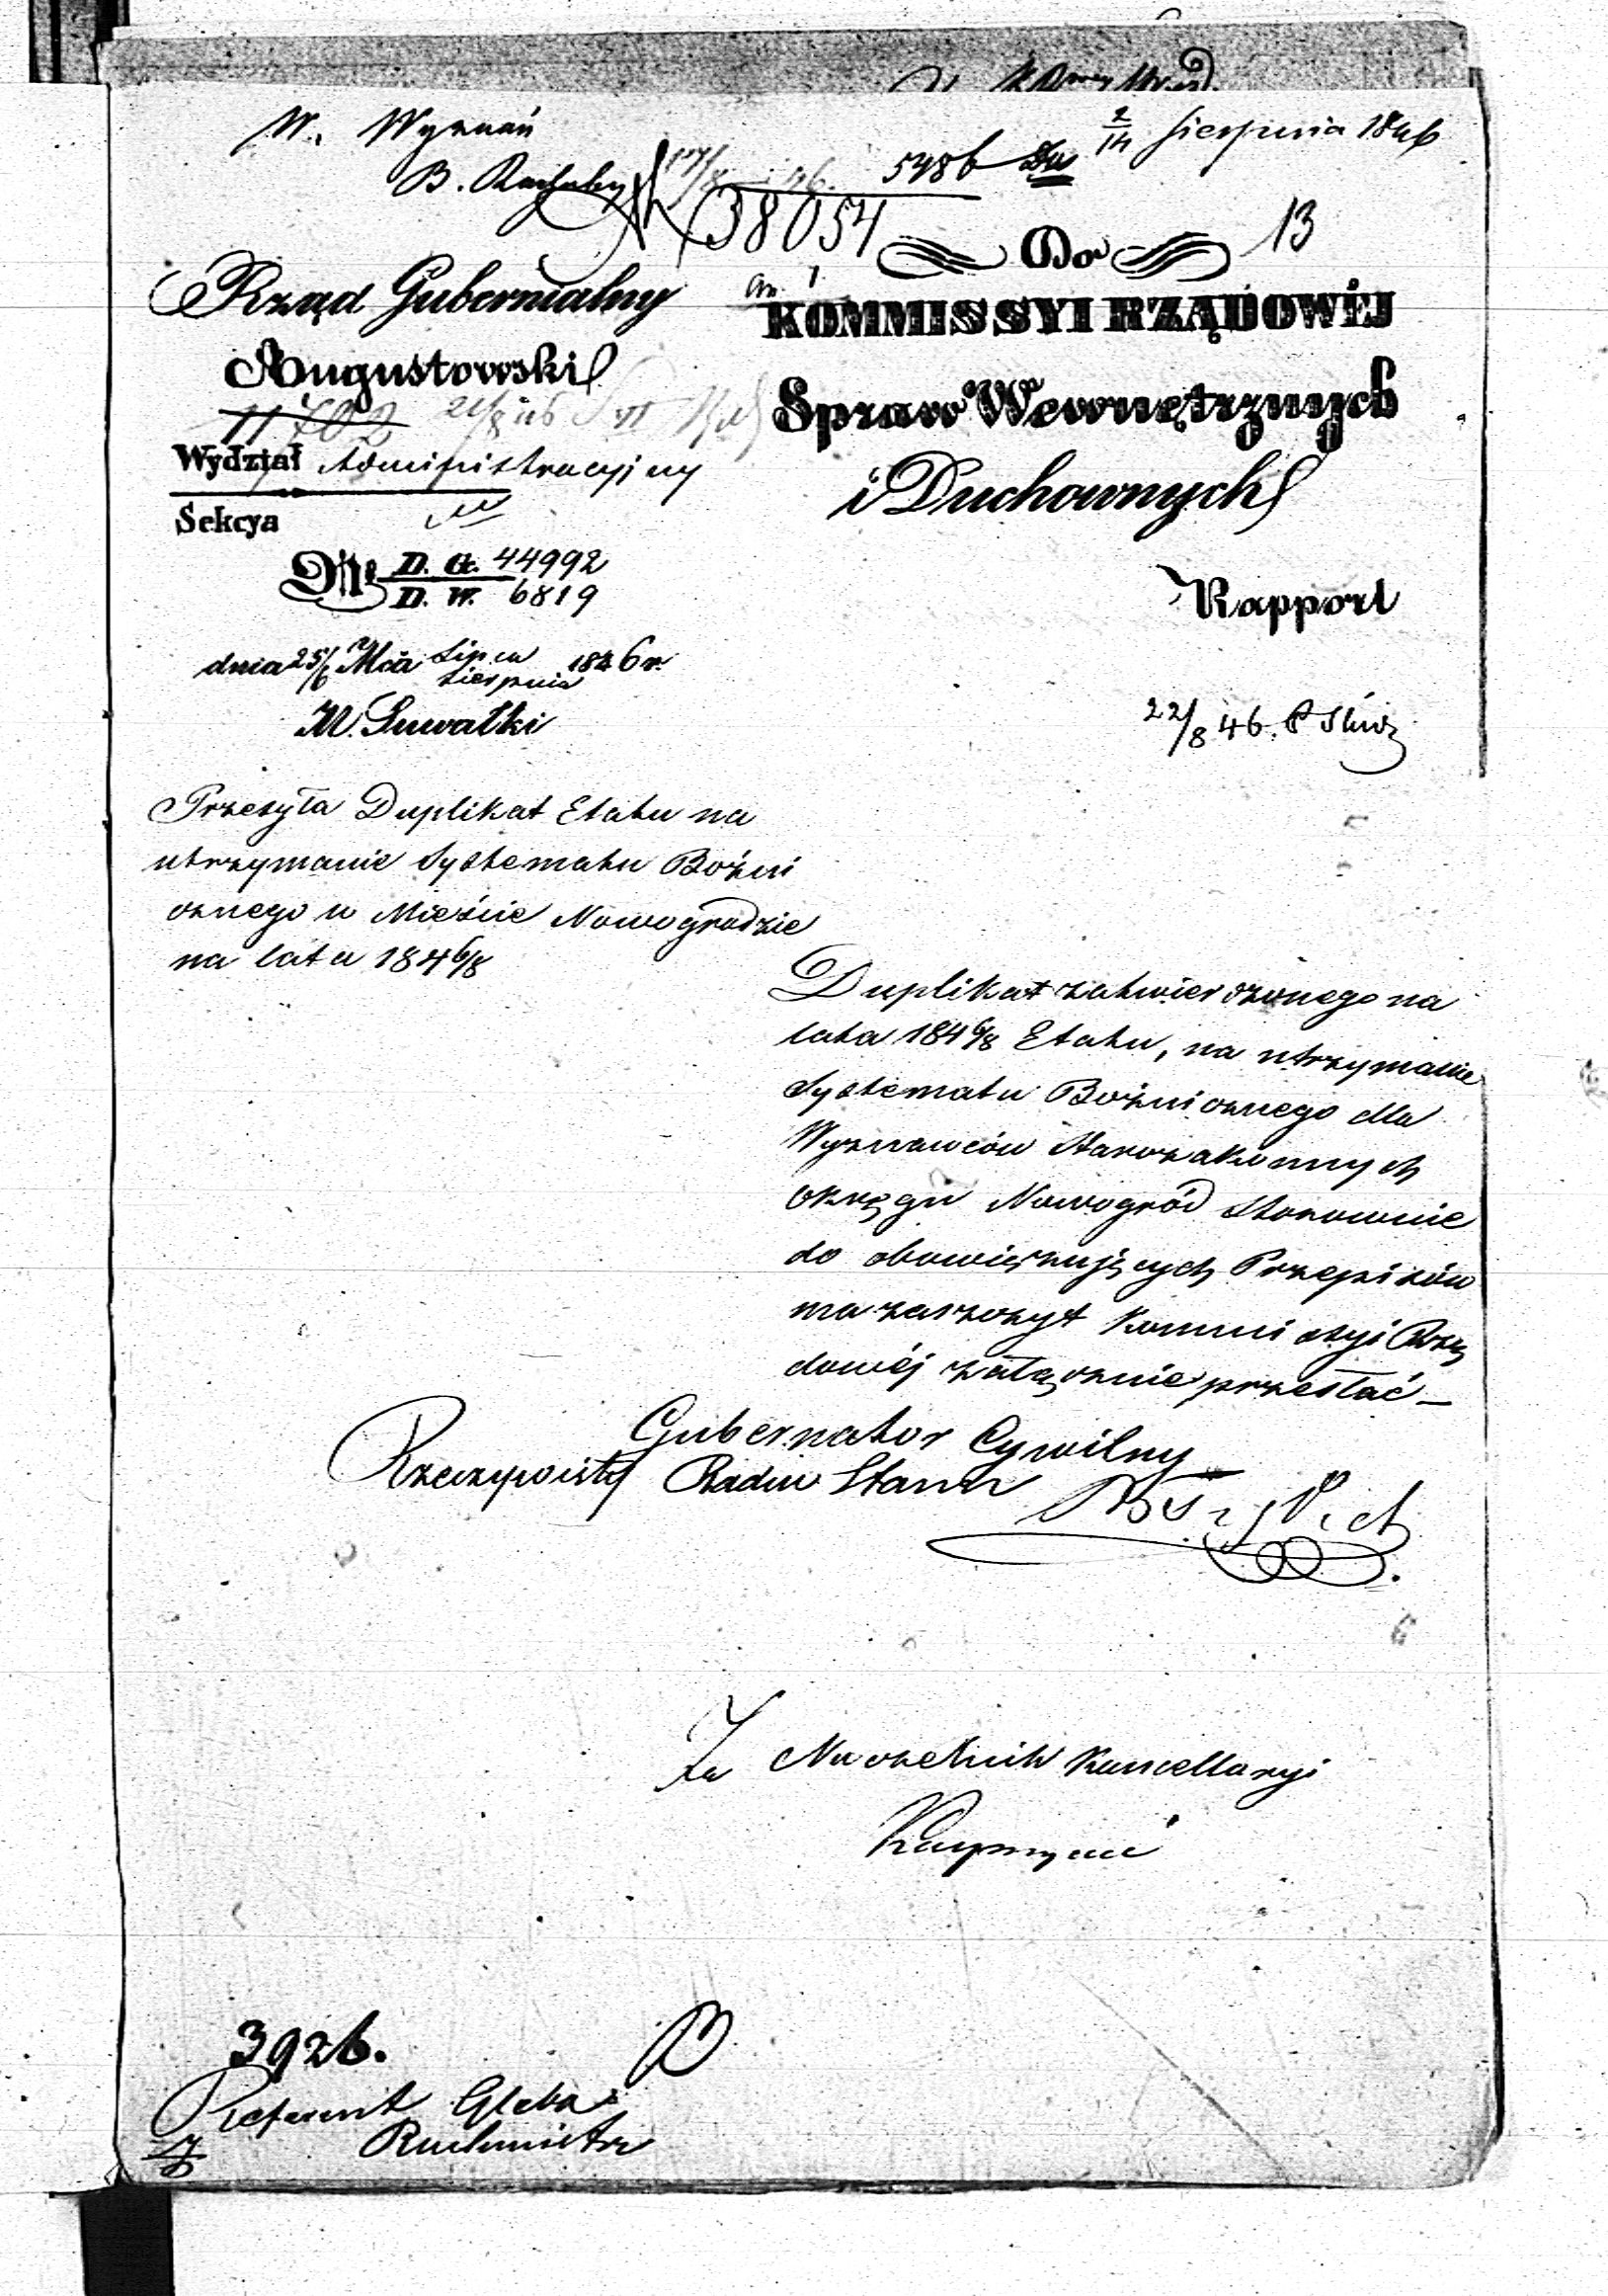 W. Wyznań
2/14 Sierpnia 1846
B.
5486
38054
13
Rząd Gubernialny
Augustowski
11702
Wydział Administracyjny
Sekcya
№ D. G. 44992
D. W. 6819
dnia 25/6 Mca Lipca Sierpnia 1846 r.
M. Suwałki
Do
KOMMISSYI RZĄDOWÉJ
Spraw Wewnętrznych
i Duchownych
Rapport
22/8 46.
Przesyła Duplikat Etatu na
utrzymanie Systematu Bożni
cznego w Mieście Nowogrodzie
na lata 1846/8
Duplikat zatwierdzonego na
lata 1846/8 Etatu, na utrzymanie
Systematu Bożnicznego dla
Wyznawców Starozakonnych
okręgu Nowogród stosownie
do obowiązujących Przepisów
ma zaszczyt Kommissyi Rzą
dowéj załącznie przesłać —
Gubernator Cywilny
Rzeczywisty Radca Stanu
Za Naczelnik Kancellaryi
3926.
Referent Gleba
Rachmistrz